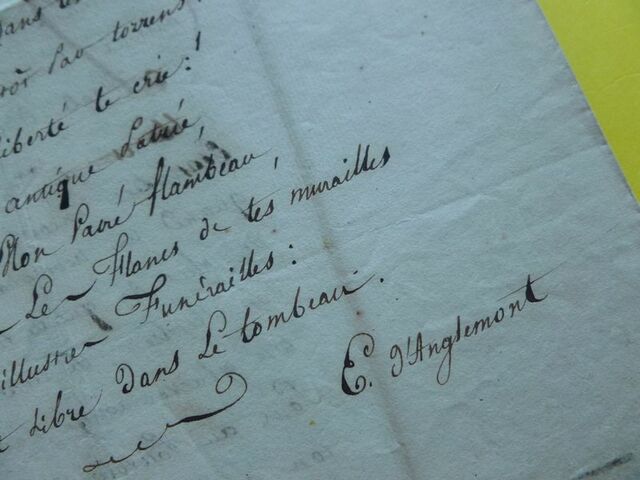 dans
torrens
liberté te crie!
antique Patrie,
Mon sacré flambeau,
Les Flancs de tes murailles
illustres Funérailles:
Libre dans Le tombeau.
E. d'Anglemont